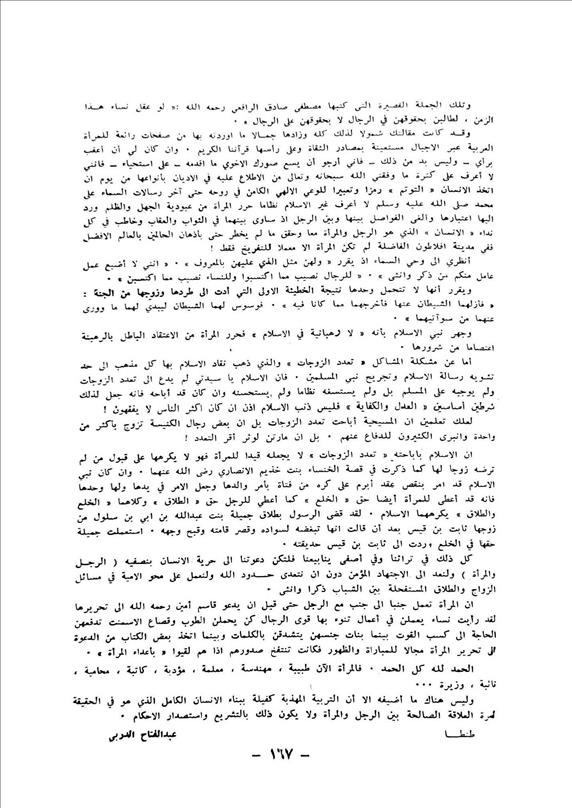 وتلك الجملة القصيرة التي كتبها مصطفى صادق الرافعي رحمه الله : « لو عقل نساء هذا
الزمن ، لطالبن بحقوقهن في الرجال لا بحقوقهن على الرجال » ٠
وقد كانت مقالتك شمولا لذلك كله وزادها جمالا ما اوردته بها من صفحات رائعة للمرأة
العربية عبر الاجيال مستعينة بمصادر الثقاة وعلى رأسها قرآننا الكريم ٠ وان كان لي أن أعقب
برأي ــ وليس بد من ذلك ــ فاني أرجو أن يسع صدرك الاخوي ما اقدمه ــ على استحياء ــ فانني
لا أعرف على كثرة ما وفقني الله سبحانه وتعالى من الاطلاع عليه في الاديان بأنواعها من يوم ان
اتخذ الانسان « التوتم » رمزا وتعبيرا للوعي الالهي الكامن في روحه حتى آخر رسالات السماء على
محمد صلى الله عليه وسلم لا أعرف غير الاسلام نظاما حرر المرأة من عبودية الجهل والظلم ورد
اليها اعتبارها والغى الفواصل بينها وبين الرجل اذ ساوى بينهما في الثواب والعقاب وخاطب في كل
نداء « الانسان » الذي هو الرجل والمرأة معا وحقق ما لم يخطر حتى بأذهان الحالمين بالعالم الافضل
ففي مدينة افلاطون الفاضلة لم تكن المرأة الا معملا للتفريخ فقط !
أنظري الى وحي السماء اذ يقرر « ولهن مثل الذي عليهن بالمعروف » ٠ « انني لا أضيع عمل
عامل منكم من ذكر وانثى » ٠ « للرجال نصيب مما اكتسبوا وللنساء نصيب مما اكتسبن » ٠
ويقرر أنها لا تتحمل وحدها نتيجة الخطيئة الاولى التي أدت الى طردها وزوجها من الجنة :
« فأزلهما الشيطان عنها فأخرجهما مما كانا فيه » ٠ فوسوس لهما الشيطان ليبدي لهما ما وورى
عنهما من سوآتيهما » ٠
وجهر نبي الاسلام بأنه « لا رهبانية في الاسلام » فحرر المرأة من الاعتقاد الباطل بالرهبنة
اعتصاما من شرورها ٠
أما عن مشكلة المشاكل « تعدد الزوجات » والذي ذهب نقاد الاسلام بها كل مذهب الى حد
تشويه رسالة الاسلام وتجريح نبي المسلمين ٠ فان الاسلام يا سيدتي لم يدع الى تعدد الزوجات
ولم يوجبه على المسلم بل ولم يستسغه نظاما ولم يستحسنه وان كان قد أباحه فانه جعل لذلك
شرطين أساسين « العدل والكفاية » فليس ذنب الاسلام اذن ان كان اكثر الناس لا يفقهون !
لعلك تعلمين ان المسيحية أباحت تعدد الزوجات بل ان بعض رجال الكنيسة تزوج بأكثر من
واحدة وانبرى الكثيرون للدفاع عنهم ٠ بل ان مارتن لوثر أقر التعدد !
ان الاسلام بإباحته « تعدد الزوجات » لا يجعله قيدا للمرأة فهو لا يكرهها على قبول من لم
ترضه زوجا لها كما ذكرت في قصة الخنساء بنت خذيم الانصاري رضى الله عنهما ٠ وان كان نبي
الاسلام قد امر بنقض عقد أبرم على كره من فتاة بأمر والدها وجعل الامر في يدها ولها وحدها
فانه قد أعطى للمرأة أيضا حق « الخلع » كما أعطى للرجل حق « الطلاق » وكلاهما « الخلع
والطلاق » يكرههما الاسلام ٠ لقد قضى الرسول بطلاق جميلة بنت عبدالله بن ابي بن سلول من
زوجها ثابت بن قيس بعد أن قالت انها تبغضه لسواده وقصر قامته وقبح وجهه ٠ استعملت جميلة
حقها في الخلع وردت الى ثابت بن قيس حديقته ٠
كل ذلك في تراثنا وفي أصفى ينابيعنا فلتكن دعوتنا الى حرية الانسان بنصفيه ( الرجل
والمرأة ) ولنعد الى الاجتهاد المؤمن دون ان نتعدى حدود الله ولنعمل على محو الامية في مسائل
الزواج والطلاق المستفحلة بين الشباب ذكرا وانثى ٠
ان المرأة تعمل جنبا الى جنب مع الرجل حتى قبل ان يدعو قاسم أمين رحمه الله الى تحريرها
لقد رأيت نساء يعملن في أعمال تنوء بها قوى الرجال كن يحملن الطوب وقصاع الاسمنت تدفعهن
الحاجة الى كسب القوت بينما بنات جنسهن يتشدقن بالكلمات وبينما اتخذ بعض الكتاب من الدعوة
الى تحرير المرأة مجالا للمباراة والظهور فكانت تنتفخ صدورهم اذا هم لقبوا « بأعداء المرأة » ٠
الحمد لله كل الحمد ٠ فالمرأة الآن طبيبة ، مهندسة ، معلمة ، مؤدبة ، كاتبة ، محامية ،
نائبة ، وزيرة ٠٠٠
وليس هناك ما أضيفه الا أن التربية المهذبة كفيلة ببناء الانسان الكامل الذي هو في الحقيقة
ثمرة العلاقة الصالحة بين الرجل والمرأة ولا يكون ذلك بالتشريع واستصدار الاحكام ٠
طنطا عبدالفتاح الدوبي
ــ ١٦٧ ــ